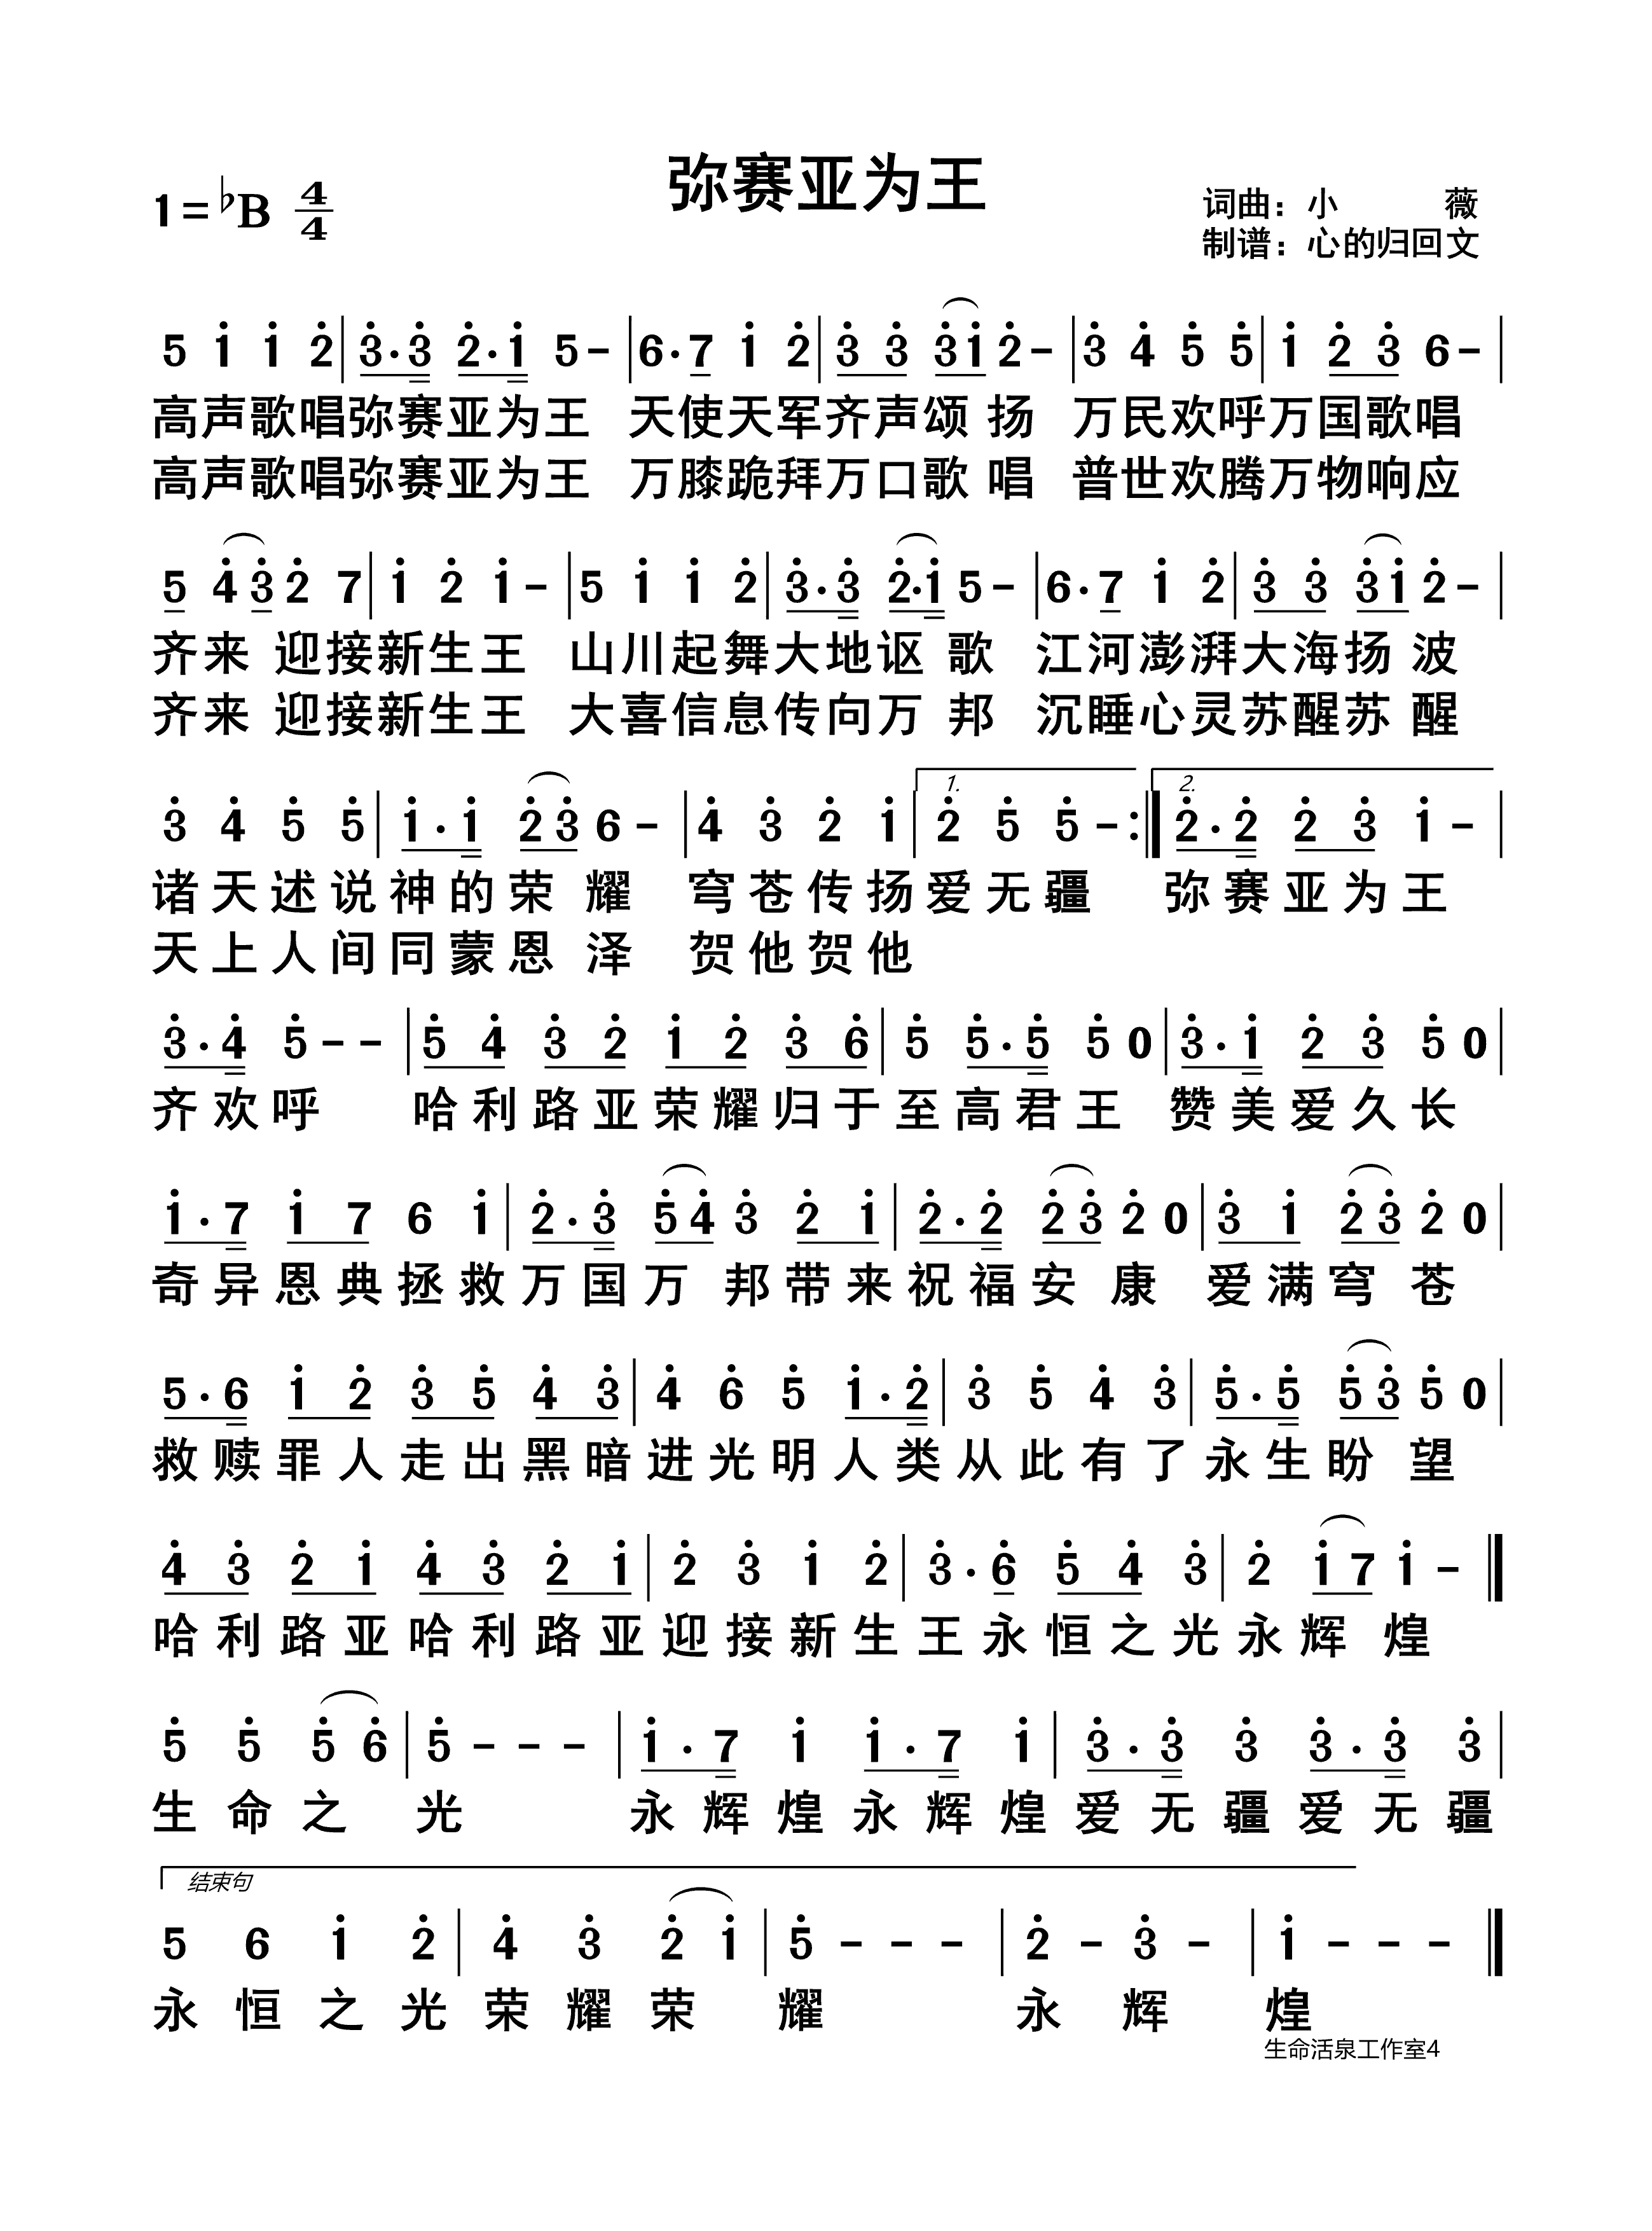 弥赛亚为王
1=♭B 4/4
词曲：小 薇
制谱：心的归回文
5 1̇ 1̇ 2̇ | 3̇· 3̇ 2̇· 1̇ 5 – | 6· 7 1̇ 2̇ | 3̇ 3̇ 3̇ 1̇ 2̇ – | 3̇ 4̇ 5̇ 5̇ | 1̇ 2̇ 3̇ 6 – |
高声歌唱弥赛亚为王 天使天军齐声颂 扬 万民欢呼万国歌唱
高声歌唱弥赛亚为王 万膝跪拜万口歌 唱 普世欢腾万物响应
5 4̇ 3̇ 2̇ 7 | 1̇ 2̇ 1̇ – | 5 1̇ 1̇ 2̇ | 3̇· 3̇ 2̇· 1̇ 5 – | 6· 7 1̇ 2̇ | 3̇ 3̇ 3̇ 1̇ 2̇ – |
齐来 迎接新生王 山川起舞大地讴 歌 江河澎湃大海扬 波
齐来 迎接新生王 大喜信息传向万 邦 沉睡心灵苏醒苏 醒
1. 2.
3̇ 4̇ 5̇ 5̇ | 1̇· 1̇ 2̇ 3̇ 6 – | 4̇ 3̇ 2̇ 1̇ | 2̇ 5̇ 5̇ – :‖ 2̇· 2̇ 2̇ 3̇ 1̇ – |
诸天述说神的荣 耀 穹苍传扬爱无疆 弥赛亚为王
天上人间同蒙恩 泽 贺他贺他
3̇· 4̇ 5̇ – – | 5̇ 4̇ 3̇ 2̇ 1̇ 2̇ 3̇ 6̇ | 5̇ 5̇· 5̇ 5̇ 0 | 3̇· 1̇ 2̇ 3̇ 5̇ 0 |
齐欢呼 哈利路亚荣耀归于至高君王 赞美爱久长
1̇· 7 1̇ 7 6 1̇ | 2̇· 3̇ 5̇ 4̇ 3̇ 2̇ 1̇ | 2̇· 2̇ 2̇ 3̇ 2̇ 0 | 3̇ 1̇ 2̇ 3̇ 2̇ 0 |
奇异恩典拯救万国万 邦带来祝福安 康 爱满穹 苍
5· 6 1̇ 2̇ 3̇ 5̇ 4̇ 3̇ | 4̇ 6̇ 5̇ 1̇· 2̇ | 3̇ 5̇ 4̇ 3̇ | 5̇· 5̇ 5̇ 3̇ 5̇ 0 |
救赎罪人走出黑暗进光明人类从此有了永生盼 望
4̇ 3̇ 2̇ 1̇ 4̇ 3̇ 2̇ 1̇ | 2̇ 3̇ 1̇ 2̇ | 3̇· 6̇ 5̇ 4̇ 3̇ | 2̇ 1̇ 7 1̇ – ‖
哈利路亚哈利路亚迎接新生王永恒之光永辉 煌
5̇ 5̇ 5̇ 6̇ | 5̇ – – – | 1̇· 7 1̇ 1̇· 7 1̇ | 3̇· 3̇ 3̇ 3̇· 3̇ 3̇ |
生命之 光 永辉煌永辉煌爱无疆爱无疆
结束句
5 6 1̇ 2̇ | 4̇ 3̇ 2̇ 1̇ | 5̇ – – – | 2̇ – 3̇ – | 1̇ – – – ‖
永恒之光荣耀荣 耀 永 辉 煌
生命活泉工作室4